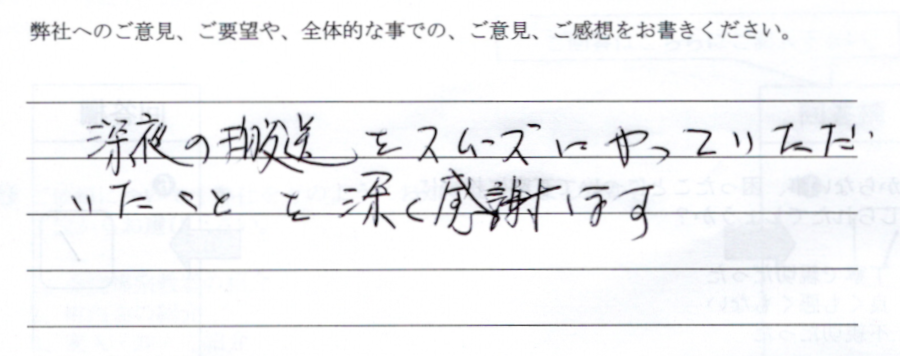 弊社へのご意見、ご要望や、全体的な事での、ご意見、ご感想をお書きください。
深夜の搬送をスムーズにやっていただ
いたことを深く感謝します